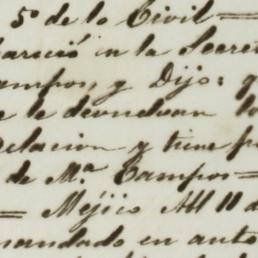 5º de lo Civil =
pareció en la Secret
Campos, y Dijo: q
e le devuelvan lo
Relacion y tiene p
de Mª Campos =
= Méjico Abl 11 d
mandado en auto